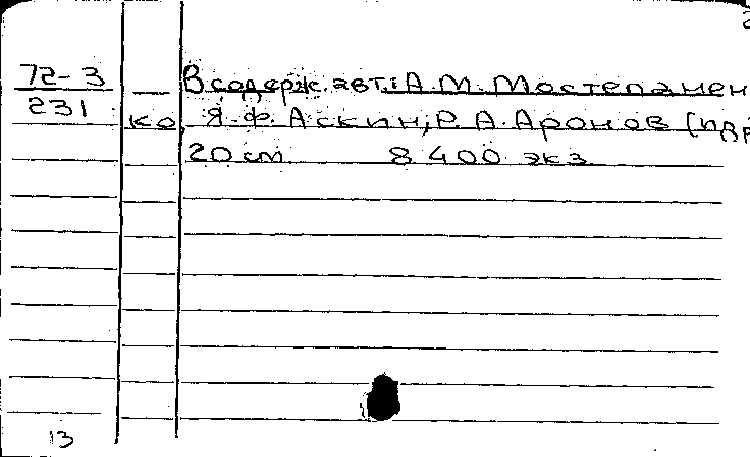 72-3 — В содерж. авт.: А. М. Мостепанен
231 ко, Я. Ф. Аскин, Р. А. Аронов [и др
20 см. 8 400 экз
13